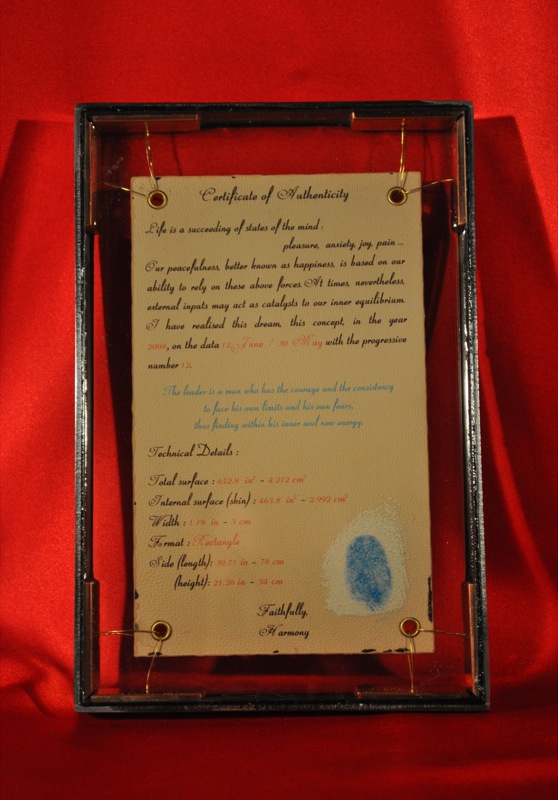 Certificate of Authenticity
Life is a succeeding of states of the mind :
pleasure, anxiety, joy, pain ...
Our peacefulness, better known as happiness, is based on our
ability to rely on these above forces. At times, nevertheless,
external inputs may act as catalysts to our inner equilibrium.
I have realised this dream, this concept, in the year
2008, on the data 12 June / 30 May with the progressive
number 12.
The leader is a man who has the courage and the consistency
to face his own limits and his own fears,
thus finding within his inner soul new energy.
Technical Details :
Total surface : 652.8 in² - 4.212 cm²
Internal surface (skin) : 463.8 in² - 2.992 cm²
Width : 1.19 in - 3 cm
Format : Rectangle
Side (length): 30.71 in - 78 cm
(height): 21.26 in - 54 cm
Faithfully,
Harmony